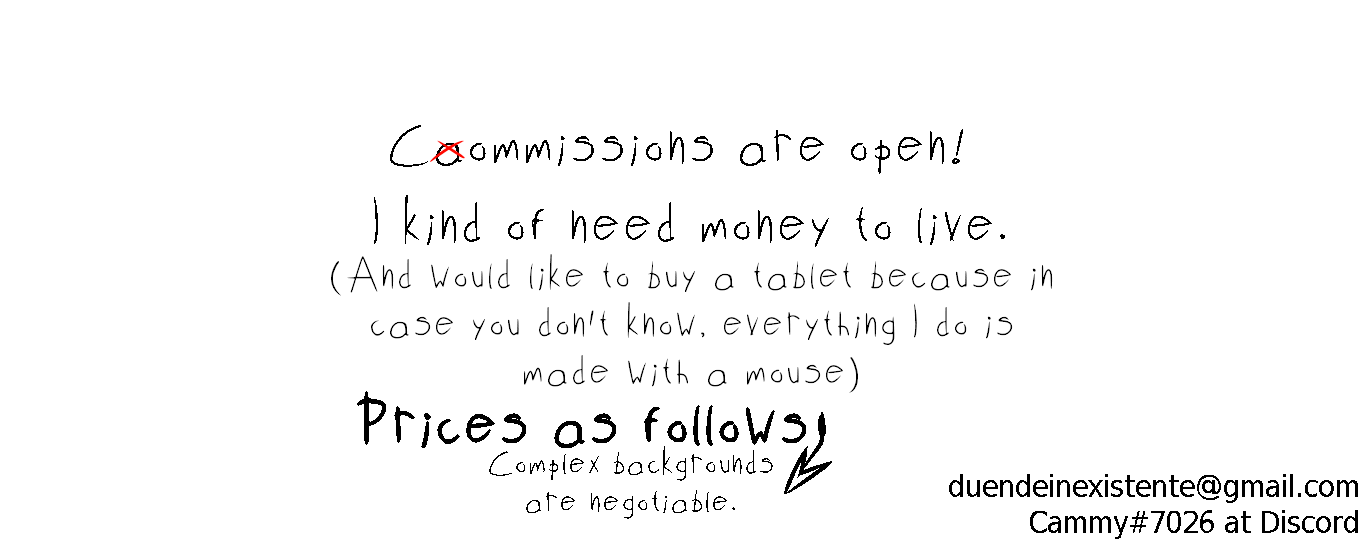 Caommissions are open!
I kind of need money to live.
(And would like to buy a tablet because in
case you don't know, everything I do is
made with a mouse)
Prices as follows
Complex backgrounds
are negotiable.
duendeinexistente@gmail.com
Cammy#7026 at Discord